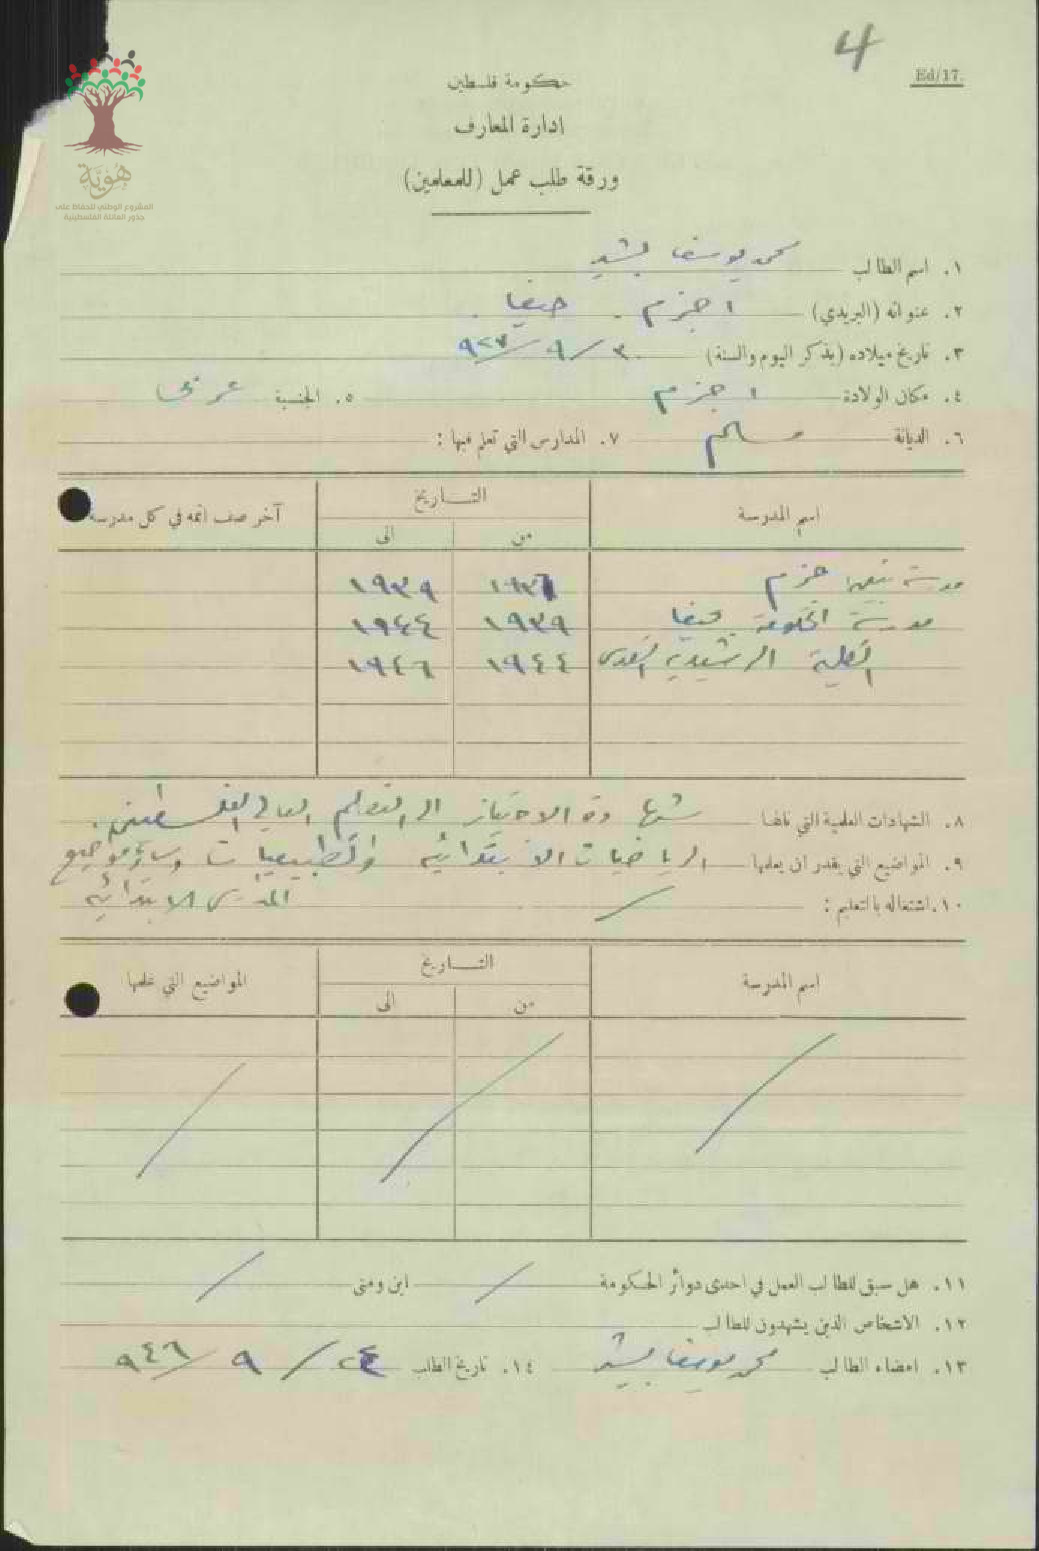 4
Ed/17.
حكومة فلسطين
ادارة المعارف
ورقة طلب عمل (للمعلمين)
هوية
المشروع الوطني للحفاظ على
جذور العائلة الفلسطينية
١. اسم الطالب محمد يوسف بشير
٢. عنوانه (البريدي) اجزم . حيفا .
٣. تاريخ ميلاده (يذكر اليوم والسنة) ٣٠/٩/٩٢٧
٤. مكان الولادة اجزم ٥. الجنسية عربي
٦. الديانة مسلم ٧. المدارس التي تعلم فيها :
اسم المدرسة التاريخ آخر صف اتمه في كل مدرسة
من الى
مدرسة جزم ١٩٣٩
مدرسة الحكومة حيفا ١٩٣٩ ١٩٤٤
الكلية الرشيدية القدس ١٩٤٤ ١٩٤٦
٨. الشهادات العلمية التي نالها شهادة الاجتياز الى التعليم العالي الفلسطيني .
٩. المواضيع التي يقدر ان يعلمها الرياضيات الابتدائيه والطبيعيات وسائر مواضيع
المدارس الابتدائيه
١٠. اشتغاله بالتعليم : /
اسم المدرسة التاريخ المواضيع التي علمها
من الى
١١. هل سبق للطالب العمل في احدى دوائر الحكومة / اين ومتى /
١٢. الاشخاص الذين يشهدون للطالب
١٣. امضاء الطالب محمد يوسف بشير ١٤. تاريخ الطلب ٢٤/٩/٩٤٦